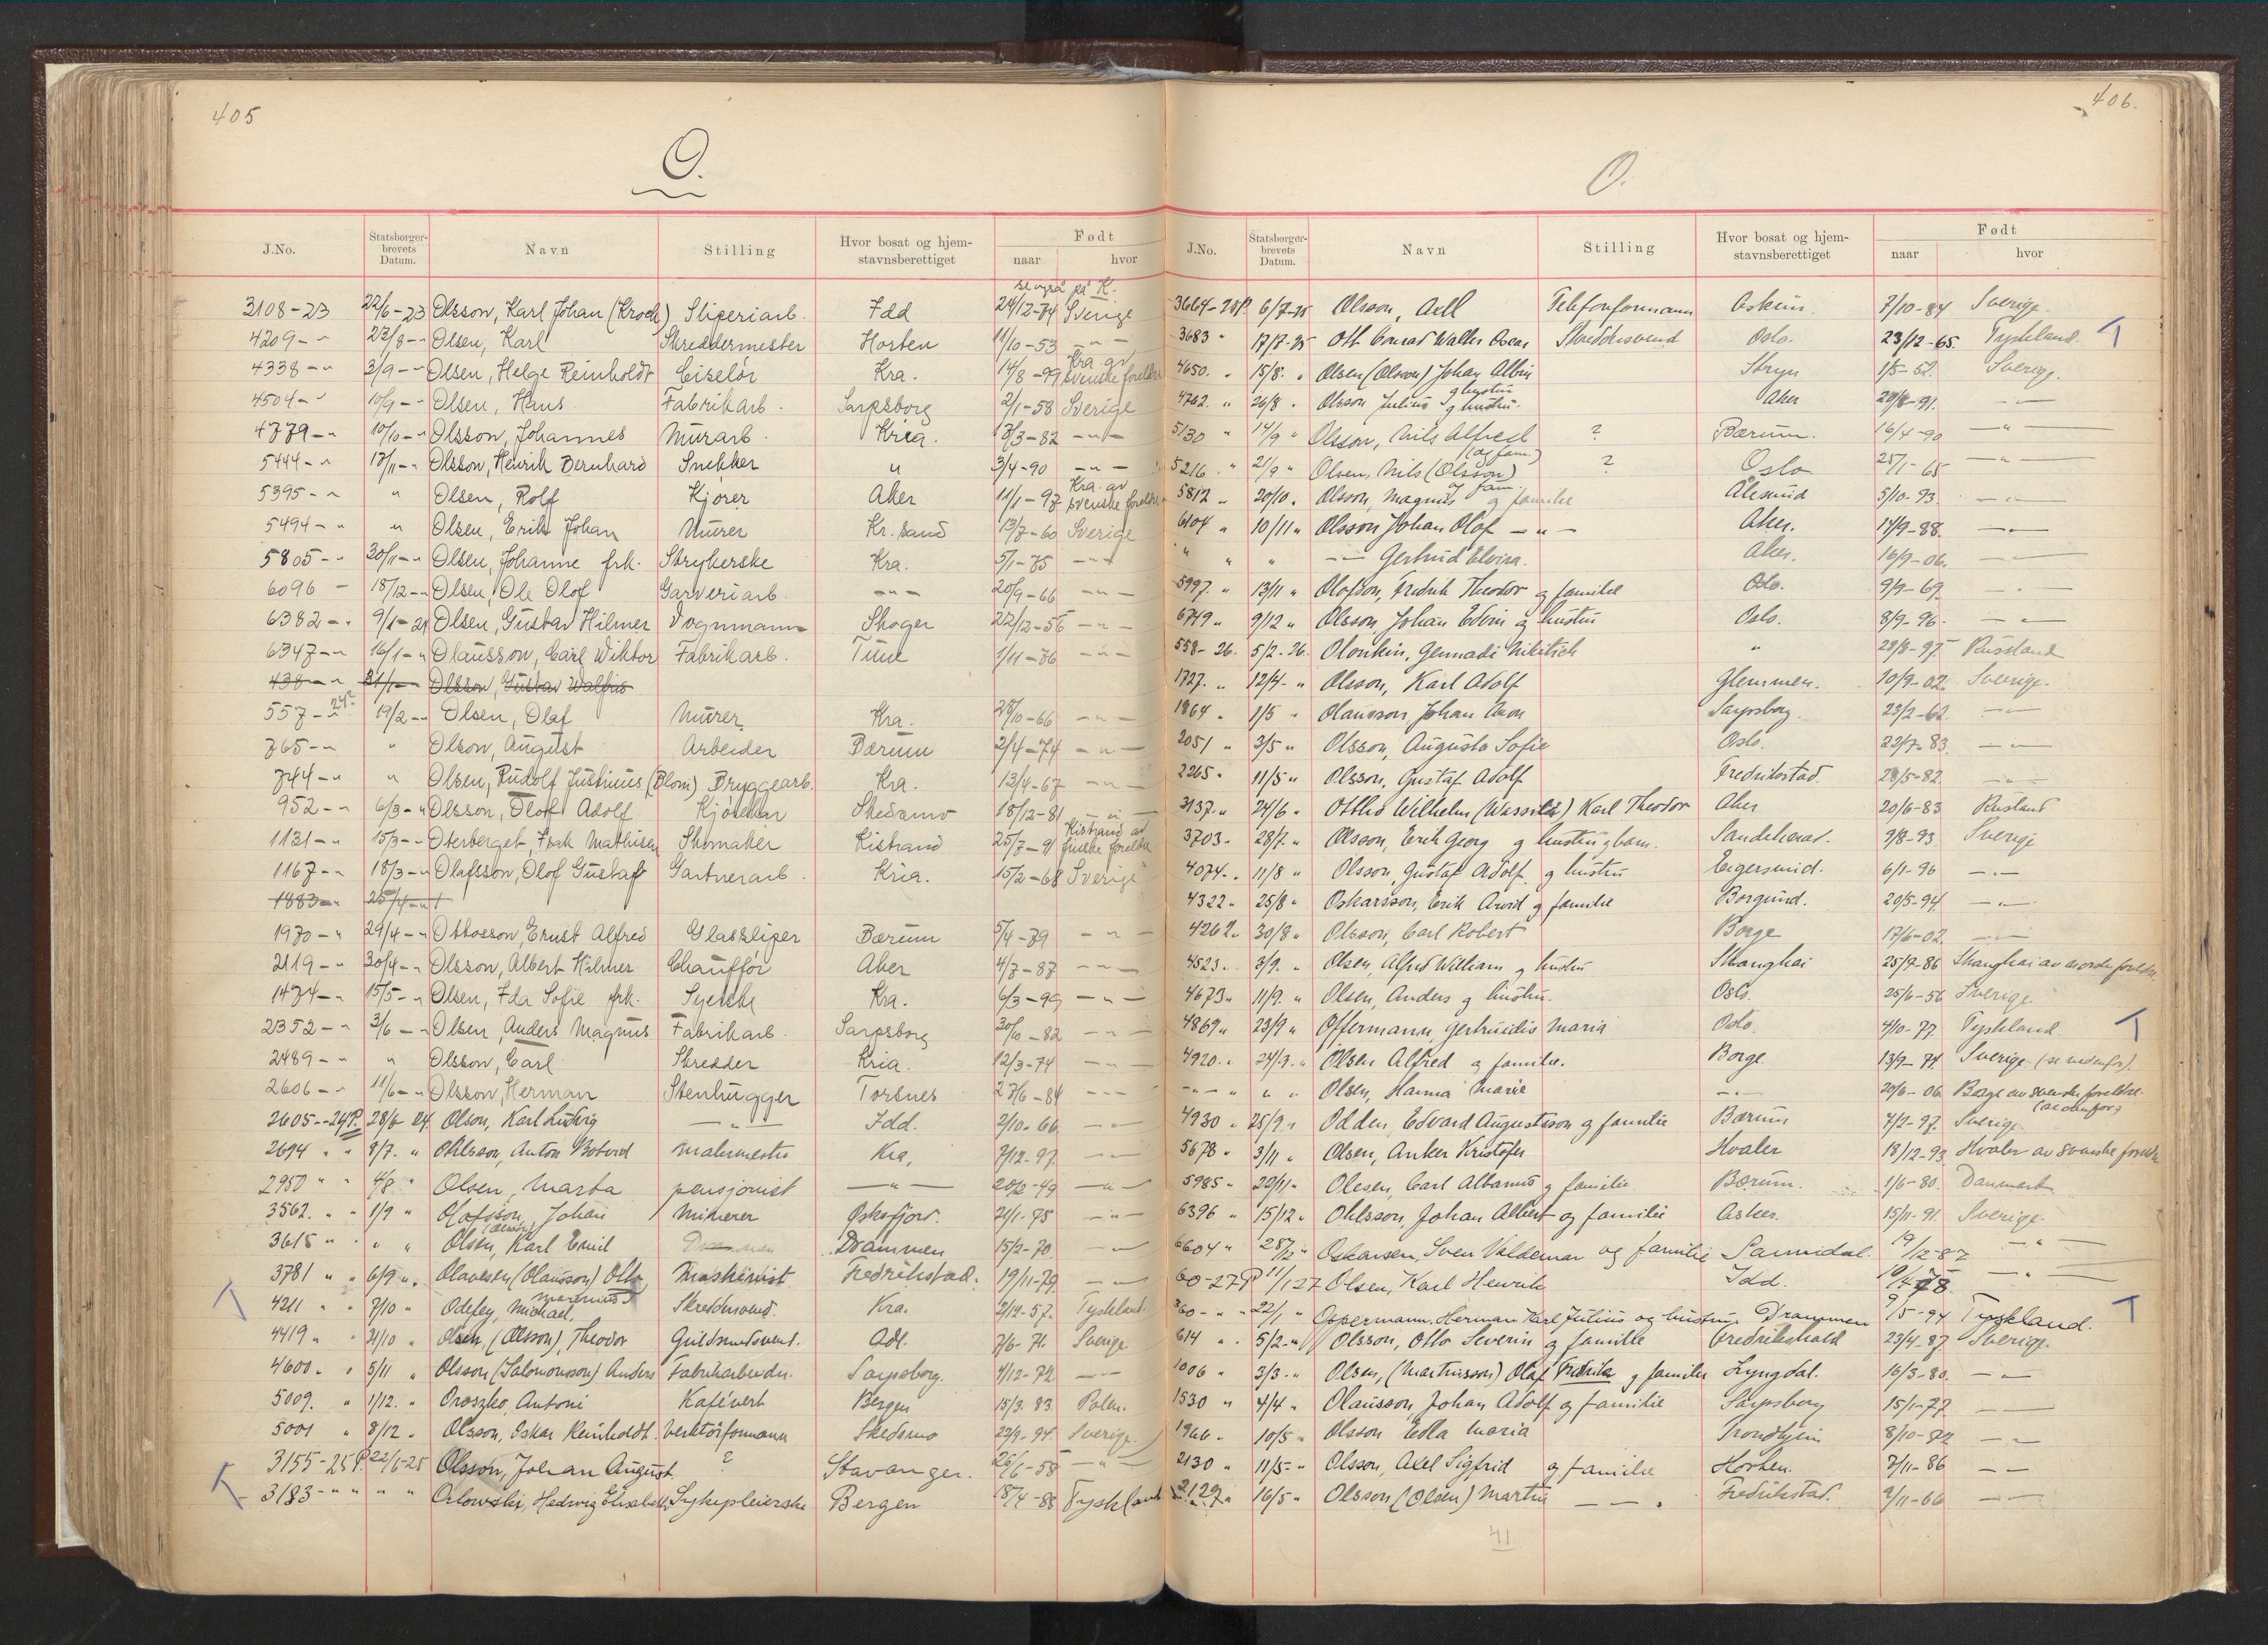 405
O.
J.No. Statsborger-brevets Datum. Navn Stilling Hvor bosat og hjem-stavnsberettiget Født naar hvor
se også på K.
3108-23 22/6-23 Olsson, Karl Johan (Krock) Sliperiarb. Idd 24/12-74 Sverige
4209-" 23/8-" Olsen, Karl Skreddermester Horten 11/10-53 -"-
4338-" 3/9-" Olsen, Helge Reinholdt Ciselør Kra. 14/8-99 Kra. av svenske foreldre
4504-" 10/9-" Olsen, Hans Fabrikarb. Sarpsborg 2/1-58 Sverige
4779-" 10/10-" Olsson, Johannes Murarb. Kria. 13/3-82 -"-
5444-" 13/11-" Olsson, Henrik Bernhard Snekker " 3/4-90 -"-
5395-" " Olsen, Rolf Kjører Aker 11/1-97 Kra. av svenske foreldre
5494-" " Olsen, Erik Johan Murer Kr.sand 13/7-60 Sverige
5805-" 30/11-" Olsen, Johanne frk. Strykerske Kra. 5/1-75 -"-
6096 - 18/12-" Olsen, Ole Olof Garveriarb. -"- 20/9-66 -"-
6382-" 9/1-24 Olsen, Gustav Hilmer Vognmann Skoger 22/12-56 -"-
6347-" 16/1-" Olausson, Carl Wiktor Fabrikarb. Tune 1/11-76 -"-
438-" 31/1-" Olsson, Gustav Walfrid
557-24P. 19/2-" Olsen, Olaf Murer Kra. 28/10-66 -"-
765-" " Olson, August Arbeider Bærum 2/4-74 -"-
744-" " Olsen, Rudolf Justinius (Blom) Bryggearb. Kra. 13/4-67 -"-
952-" 6/3-" Olsson, Olof Adolf Skedsmo 18/12-81 -"-
1131-" 15/3-" Oterberget, Isak Mathisen Skomaker Kistrand 25/7-91 Kistrand av finske foreldre
1167-" 18/3-" Olafsson, Olof Gustaf Gartnerarb. Kria. 15/2-68 Sverige
1883-" 25/4-"
1970-" 29/4-" Ottosson, Ernst Alfred Glassliper Bærum 5/4-79 -"-
2119-" 30/4-" Olsson, Albert Hilmer Chauffør Aker 4/7-87 -"-
1474-" 15/5-" Olsen, Ida Sofie frk. Syerske Kra. 6/3-99 -"-
2352-" 3/6-" Olsen, Anders Magnus Fabrikarb. Sarpsborg 30/10-82 -"-
2489-" " Olsson, Carl Skredder Kria. 12/3-74 -"-
2606-" 11/6-" Olsson, Herman Stenhugger Torsnes 27/6-84 -"-
2605-24P. 28/6 24. Olson, Karl Ludvig -"- Idd. 2/10-66 -"-
2694 " " 8/7. " Ohlsson, Anton Malermester Kra, 7/12-97 -"-
2950 " " 4/8 " Olsen, Marta pensjonist -"- 20/2-49 -"-
3562. " " 1/9 " Olofsson, Johan Minerer 21/1-75 -"-
3615 " " " " Olsen, (Olsson) Karl Emil Drammen 15/2-70 -"-
3781 " " 6/9 ". Olavesen (Olausson) Otto Marenius Maskinist Fredrikstad. 19/11-79 -"-
4211 " " 7/10 " Odefey, Michael, Skreddersvend. Kra. 2/12-57. Tyskland.
4419 " " 21/10 " Olsen (Olsson), Theodor Guldsmedsvent. Adl. 7/6-71. Sverige
4600. " 5/11 " Olsson (Salomonsson) Anders Fabrikarbeider. Sarpsborg. 4/12-72 -"-
5009. " 1/12. " Oroszko, Antoni Kafévert Bergen 15/3 83. Polen.
5001 " 8/12. " Olsson, Oskar Reinholdt. Verktøiformann Skedsmo 22/9-94 Sverige.
3155-25P. 22/6-25 Olsson, Johan August ? Stavanger. 26/6-58 -"-
3183-" " " " Orlowski, Hedwig Elisabeth, Sykepleierske Bergen 18/4-88 Tyskland
406.
O.
J.No. Statsborger-brevets Datum. Navn Stilling Hvor bosat og hjem-stavnsberettiget Født naar hvor
3664-25P. 6/7-25 Olsson, Axel Telefonformann Askim. 7/10-84 Sverige.
3683 " 17/7-25 Ott Conrad Walter Oscar Skreddersvend Oslo. 23/12-65. Tyskland.
4650. " 15/8. " Olsen (Olsson) Johan Albin Stryn 1/5-52. Sverige.
4762. " 26/8 " Olsson Julius og hustru. Aker 29/8-91. -"-
5130 " 14/9 " Olsson, Nils Alfred (og fam.) ? Bærum. 16/4-90 -"-
5216. " 21/9 " Olsen, Nils (Olsson) og fam. ? Oslo 25/1-65 -"-
5812 " 20/10. Olsson, Magnus og familie Ålesund 5/10-93. -"-
6104 " 10/11 " Olsson Johan Olof -"- Aker. 14/9-88. -"-
" " -"- Gertrud Elvira. Aker. 16/9-06. -"-
5997. " 13/11 " Olofson, Fredrik Theodor og familie Oslo. 9/9-69. -"-
6749 " 9/12 " Olsson Johan Edvin og hustru Oslo. 8/9-96. -"-
558-26. 5/2-26. Olonkin, Gennadi Nikitich " 28/8-97. Russland
1727. " 12/4-" Olsson, Karl Adolf Glemmen. 10/9-02. Sverige.
1864 " 1/5 " Olausson, Johan Aron Sarpsborg. 23/2-62. -"-
2051 " 3/5 " Olsson, Augusta Sofie Oslo. 22/7-83. -"-
2265 " 11/5 " Olsson, Gustaf Adolf Fredrikstad. 28/5-82. -"-
3137. " 24/6 " Ottho Wilhelm (Wassili) Karl Theodor Aker 20/6-83 Rusland
3703. 28/7. " Olsson, Erik Georg og hustru og barn. Sandeherat. 9/8-93. Sverige
4074. " 11/8 " Olsson, Gustaf Adolf og hustru Eigersund. 6/1-96 -"-
4322. " 25/8 " Oskarsson, Erik Arvid og familie Borgund. 20/5-94. -"-
4262. " 30/8 " Olsson, Carl Robert Borge 17/6-02. -"-
4523. " 3/9. " Olsen, Alfred William og hustru Shanghai 25/9-86 Shanghai av norske foreldre.
4673 " 11/9. " Olsen, Anders og hustru. Oslo. 25/6-56 Sverige.
4869 " 23/9 " Offermann, Gertruidis Maria Oslo. 4/10-77. Tyskland
4920. " 24/9. " Olsen Alfred og familie. Borge 13/9-74. Sverige (se nedenfor).
-"- " " " Olsen, Hanna Marie -"- 20/6-06. Borge av svenske foreldre. (se ovenfor)
4930 " 25/9 " Odden, Edvard Augustsson og familie Bærum 7/2-97. Sverige.
5678 " 3/11 " Olsen, Anker Kristofer Hvaler 18/12-93. Hvaler av svenske foreldre
5985 " 22/11 " Olesen, Carl Albanus og familie Bærum. 1/6-80. Danmark
6396 " 15/12 " Ohlsson, Johan Albert og familie Asker. 15/11-91. Sverige.
6604 " 28/12 " Oskarsen, Sven Valdemar og familie Sannidal. 19/12-87 -"-
60-27P 11/1 27 Olsen, Karl Henrik Idd. -"-
360-" " 22/1 " Oppermann, Herman Karl Julius og hustru Drammen 9/5-94 Tyskland.
614 " " 5/2-" Olsson, Otto Severin og familie Fredrikshald 23/4-87 Sverige.
1006 " 3/3-" Olsen, (Martinsson) Olaf Fredrik og familie Lyngdal. 16/3-80. -"-
1530 " 4/4 " Olausson, Johan Adolf og familie Sarpsborg 15/1-77 -"-
1966 " 10/5 " Olsson Edla Maria Trondhjem 8/10-72 -"-
2130 " 11/5-" Olsson, Axel Sigfrid og familie Horten. 7/11-86 -"-
2129 " 16/5 " Olsson (Olsen) Martin -"- Fredrikstad. 9/11-66 -"-
41